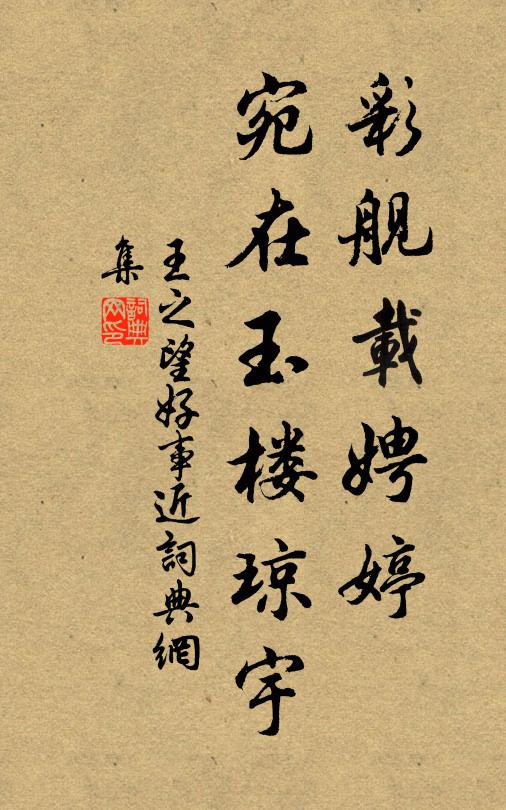 彩舰載娉婷
宛在玉楼琼宇
王之望好事近詞典網
集
詞典
网印